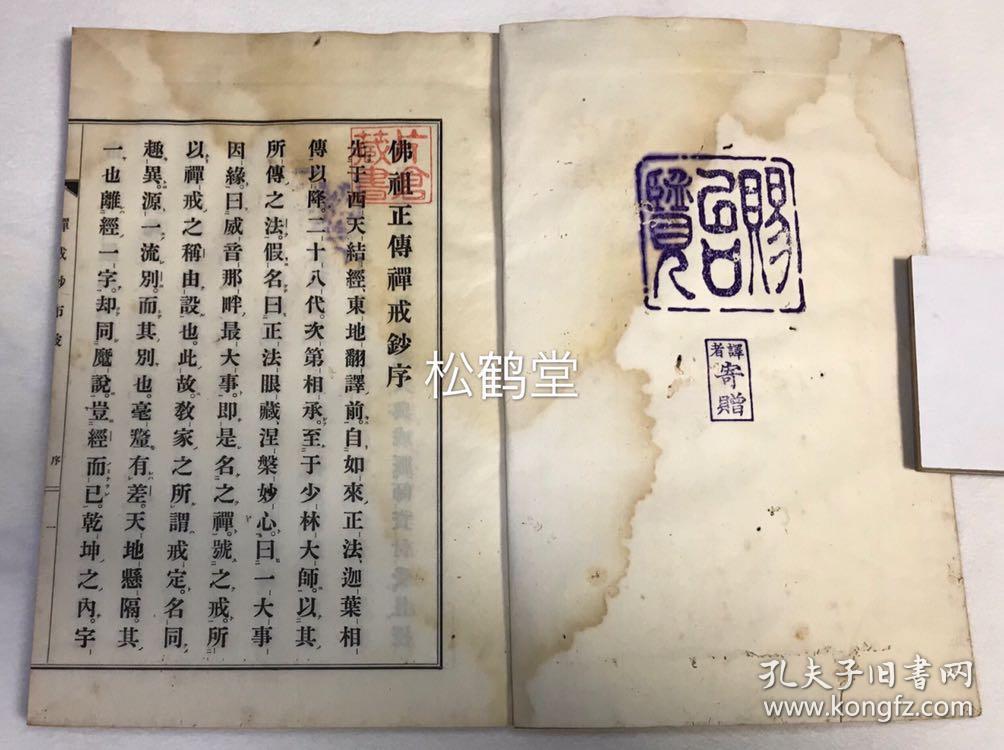 賜
台
覽
譯者
寄贈
片倉
藏書
佛祖正傳禪戒鈔序
先于西天結經、東地翻譯前。自如來正法、迦葉相
傳以降。二十八代。次第相承。至于少林大師。以其
所傳之法。假名曰正法眼藏、涅槃妙心。曰一大事
因緣。曰威音那畔最大事。即是名之禪。號之戒。所
以禪戒之稱由設也。此故。敎家之所謂戒定。名同、
趣異。源一、流別。而其別也。毫釐有差。天地懸隔。其
一也離經一字。却同魔說。豈經而已。乾坤之內。宇
序
一
松鹤堂
孔夫子旧书网
www.kongfz.com